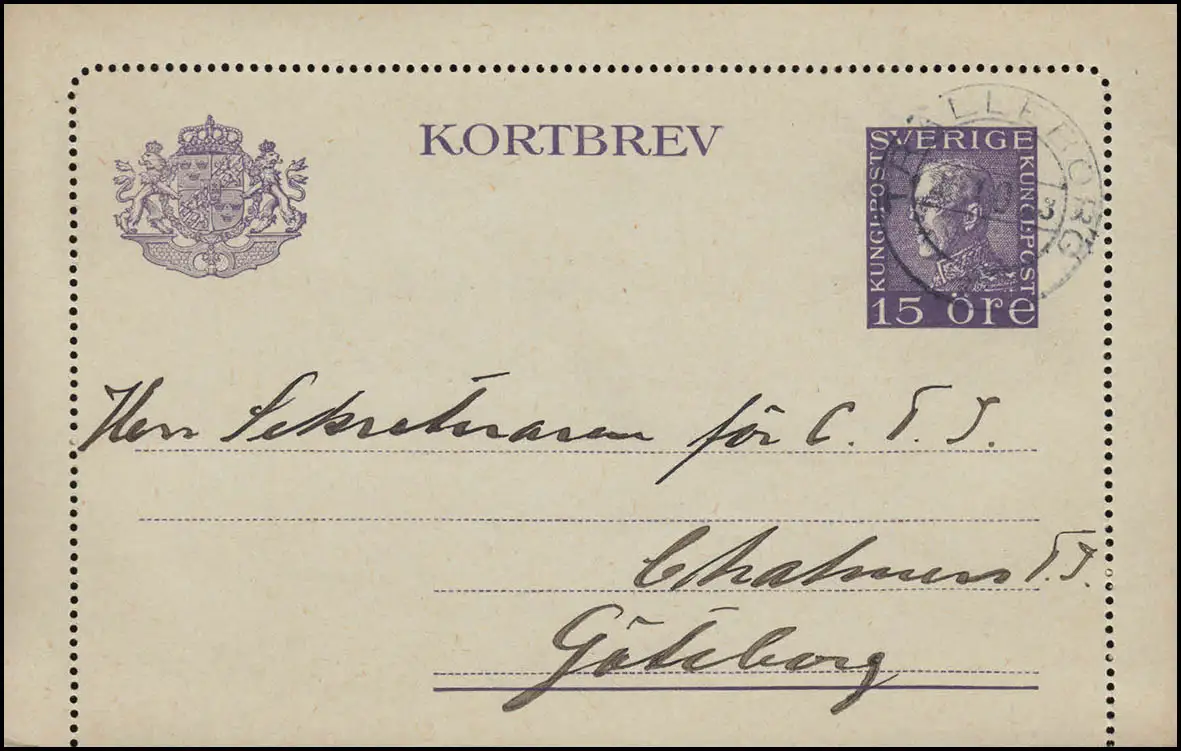 KORTBREV
SVERIGE
KUNGL POST
KUNGL POST
15 öre
TRÄLLEBORG
Herr Sekreteraren för C. T. I.
Chalmers T. I.
Göteborg